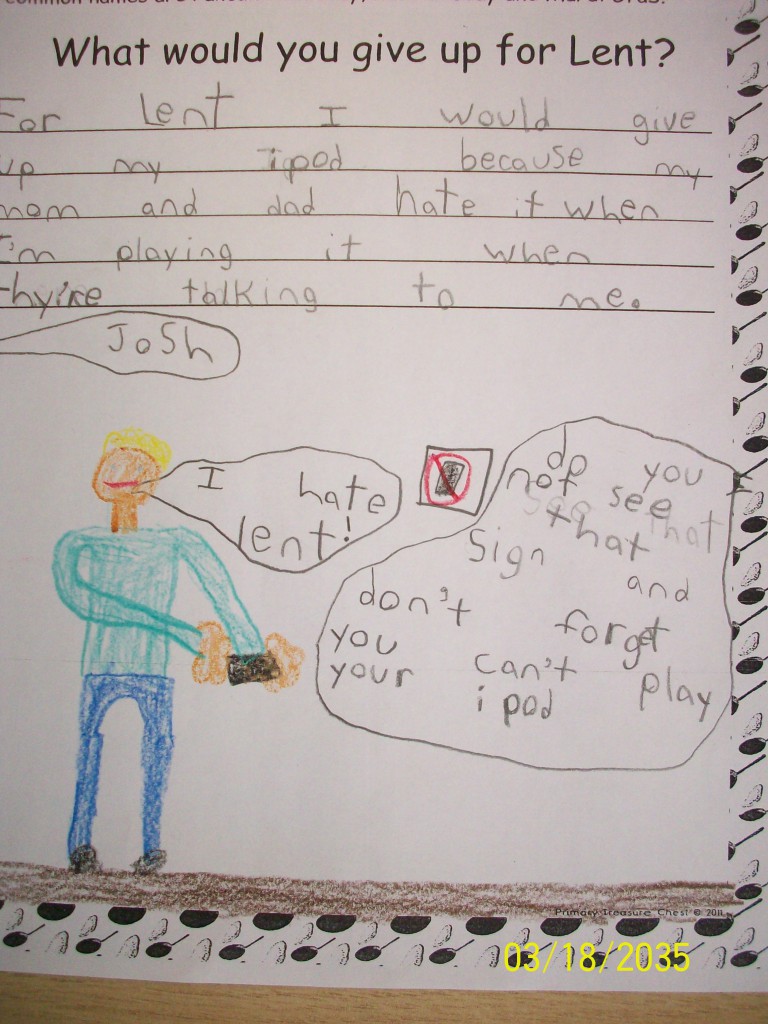 What would you give up for Lent?
For Lent I would give
up my ipod because my
mom and dad hate it when
I'm playing it when
thyire talking to me.
JoSh
I hate
lent!
do you
not see
that
Sign and
don't forget
you can't play
your ipod
Primary Treasure Chest © 2011
03/18/2035